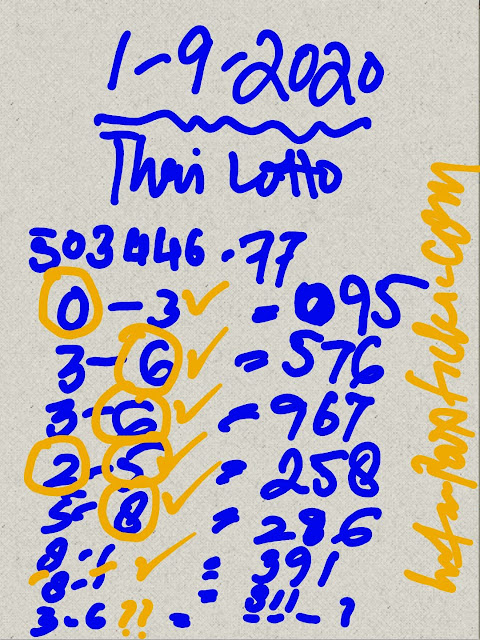 1-9-2020
Thai Lotto
503446.77
0-3✓=095
3-6✓=576
3-6✓=967
2-5✓=258
5-8✓=286
8-1✓=391
8-1=811-?
3-6??=